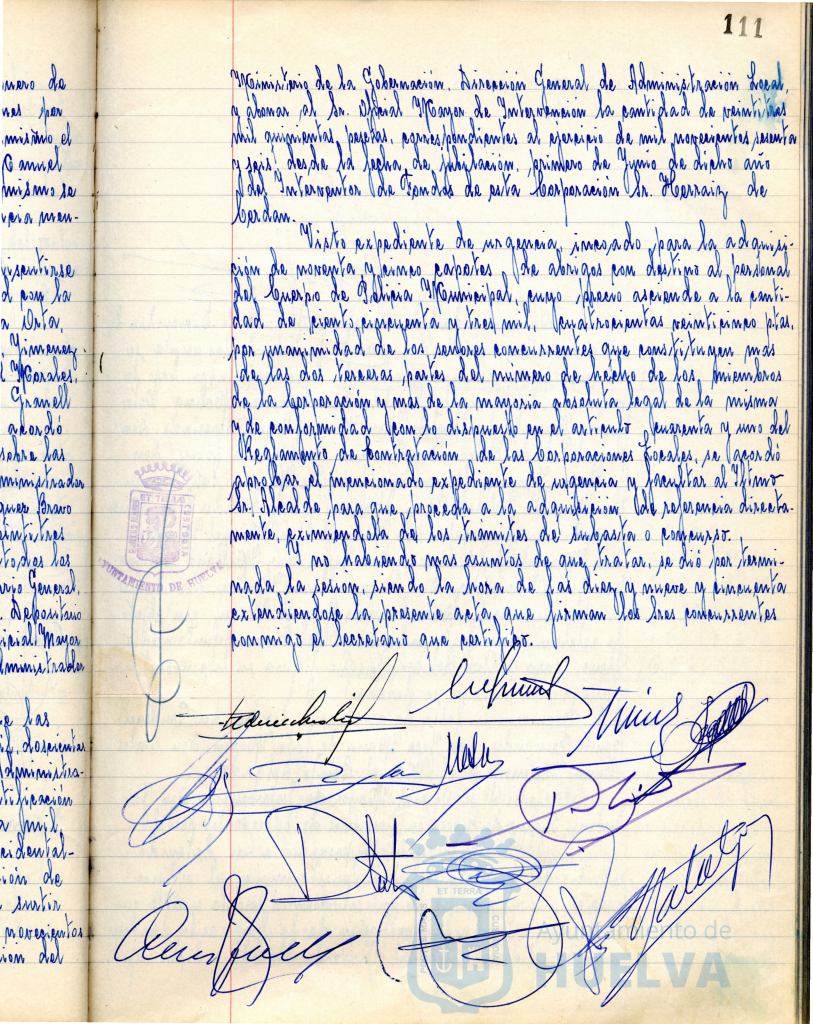 111
nero de
nes por
mismo el
Manuel
mismo se
cia men-
discutirse
d con la
a Orta,
Yimenez
Morales,
Granell
acordó
sobre las
ministrador
quez Bravo
eintitres
todos los
ario General,
Depositario
icial Mayor
dministrador
e las
il doscientas
Administra-
tificación
a mil
cidental-
ión de
surtir
novecientos
ion del
Ministerio de la Gobernación, Dirección General de Administración Local,
y abonar al Sr. Oficial Mayor de Intervención la cantidad de veintitres
mil quinientas pesetas, correspondientes al ejercicio de mil novecientos sesenta
y seis, desde la fecha de jubilación, primero de Junio de dicho año
del Interventor de Fondos de esta Corporación Sr. Herraiz de
Cerdan.
Visto expediente de urgencia, incoado para la adquisi-
ción de noventa y cinco capotes de abrigos con destino al personal
del Cuerpo de Policia Municipal, cuyo precio asciende a la canti-
dad de ciento cincuenta y tres mil, cuatrocientas veinticinco ptas.
por unanimidad de los señores concurrentes que constituyen mas
de las dos terceras partes del número de hecho de los miembros
de la Corporación y mas de la mayoria absoluta legal de la misma
y de conformidad con lo dispuesto en el articulo cuarenta y uno del
Reglamento de Contratación de las Corporaciones Locales, se acordó
aprobar el mencionado expediente de urgencia y facultar al Iltmo
Sr. Alcalde para que proceda a la adquisicion de referencia directa-
mente, eximiendola de los tramites de subasta o concurso.
Y no habiendo mas asuntos de que tratar, se dió por termi-
nada la sesion, siendo la hora de las diez y nueve y cincuenta
extendiendose la presente acta, que firman los Sres concurrentes
conmigo el Secretario que certifico.
AYUNTAMIENTO DE HUELVA
ET TERRA
Ayuntamiento de
HUELVA